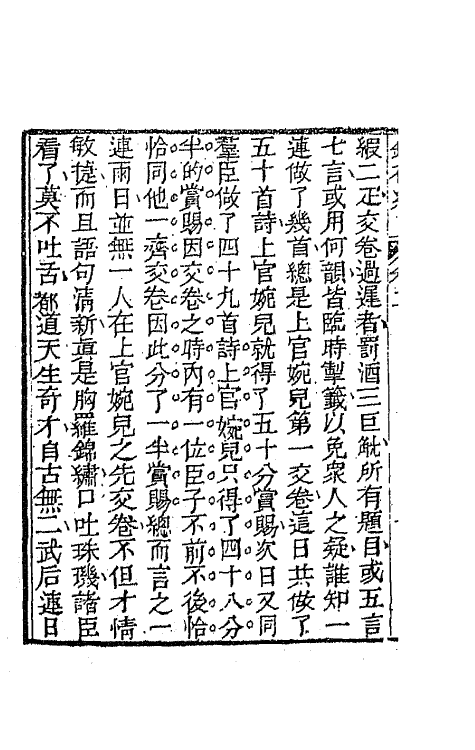 緞二疋交卷過遲者罰酒三巨觥所有題目或五言
七言或用何韻皆臨時掣籤以免衆人之疑誰知一
連做了幾首總是上官婉兒第一交卷這日共做了
五十首詩上官婉兒就得了五十分賞賜次日又同
羣臣做了四十九首詩上官婉兒只得了四十八分
半的賞賜因交卷之時內有一位臣子不前不後恰
恰同他一齊交卷因此分了一半賞賜總而言之一
連兩日並無一人在上官婉兒之先交卷不但才情
敏捷而且語句清新眞是胸羅錦繡口吐珠璣諸臣
看了莫不吐舌都道天生奇才自古無二武后連日